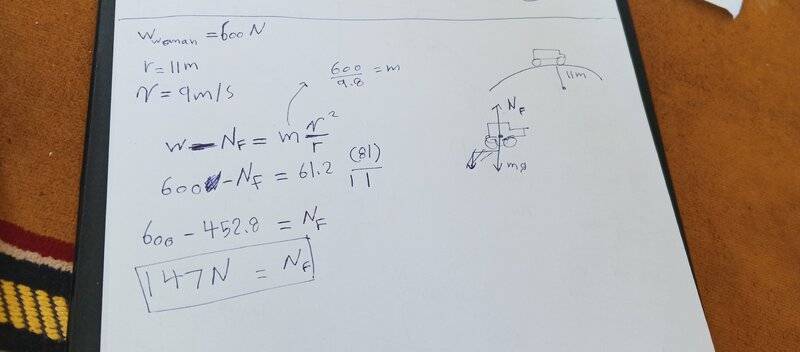 W woman = 600 N
r = 11m
v = 9m/s
600/9.8 = m
W - NF = m v²/r
600 - NF = 61.2 (81)/11
600 - 452.8 = NF
147N = NF
11m
NF
mg